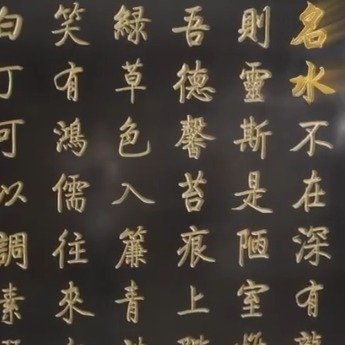 名水不在深有龍
則靈斯是陋室
吾德馨苔痕上
綠草色入簾青
笑有鴻儒往來
白丁可以調素